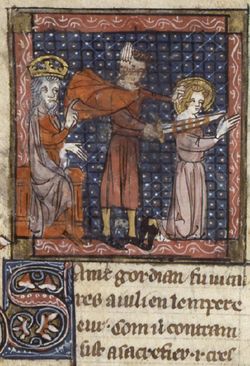 Saint gordian fu vicai
res a iulien lempere
eur. Com il contrain
sist a sacrefier .i. cres